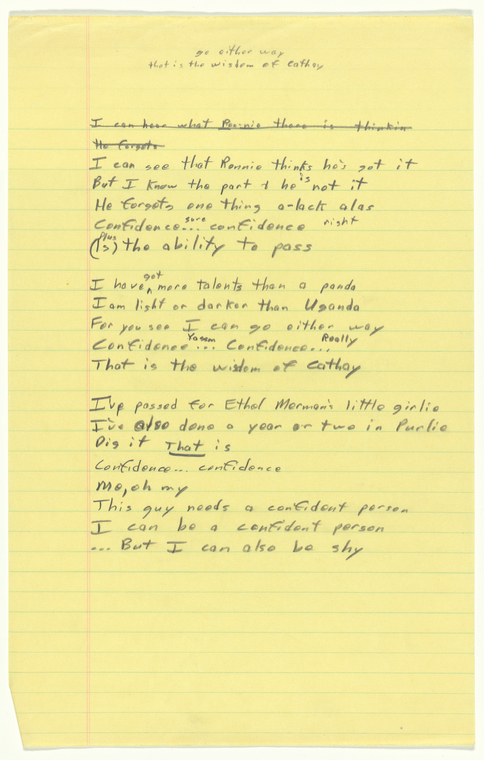 go either way
that is the wisdom of Cathay
I can hear what Ronnie there is thinkin
He forgets
I can see that Ronnie thinks he's got it
But I know the part & he is not it
He forgets one thing a-lack alas
Confidence... sure confidence right
(Is) Plus the ability to pass
I have got more talents than a panda
I am light or darker than Uganda
For you see I can go either way
Confidence Yassm ... Confidence... Really
That is the wisdom of Cathay
I've passed for Ethel Merman's little girlie
I've also done a year or two in Purlie
Dig it That is
Confidence... confidence
Me, oh my
This guy needs a confident person
I can be a confident person
... But I can also be shy